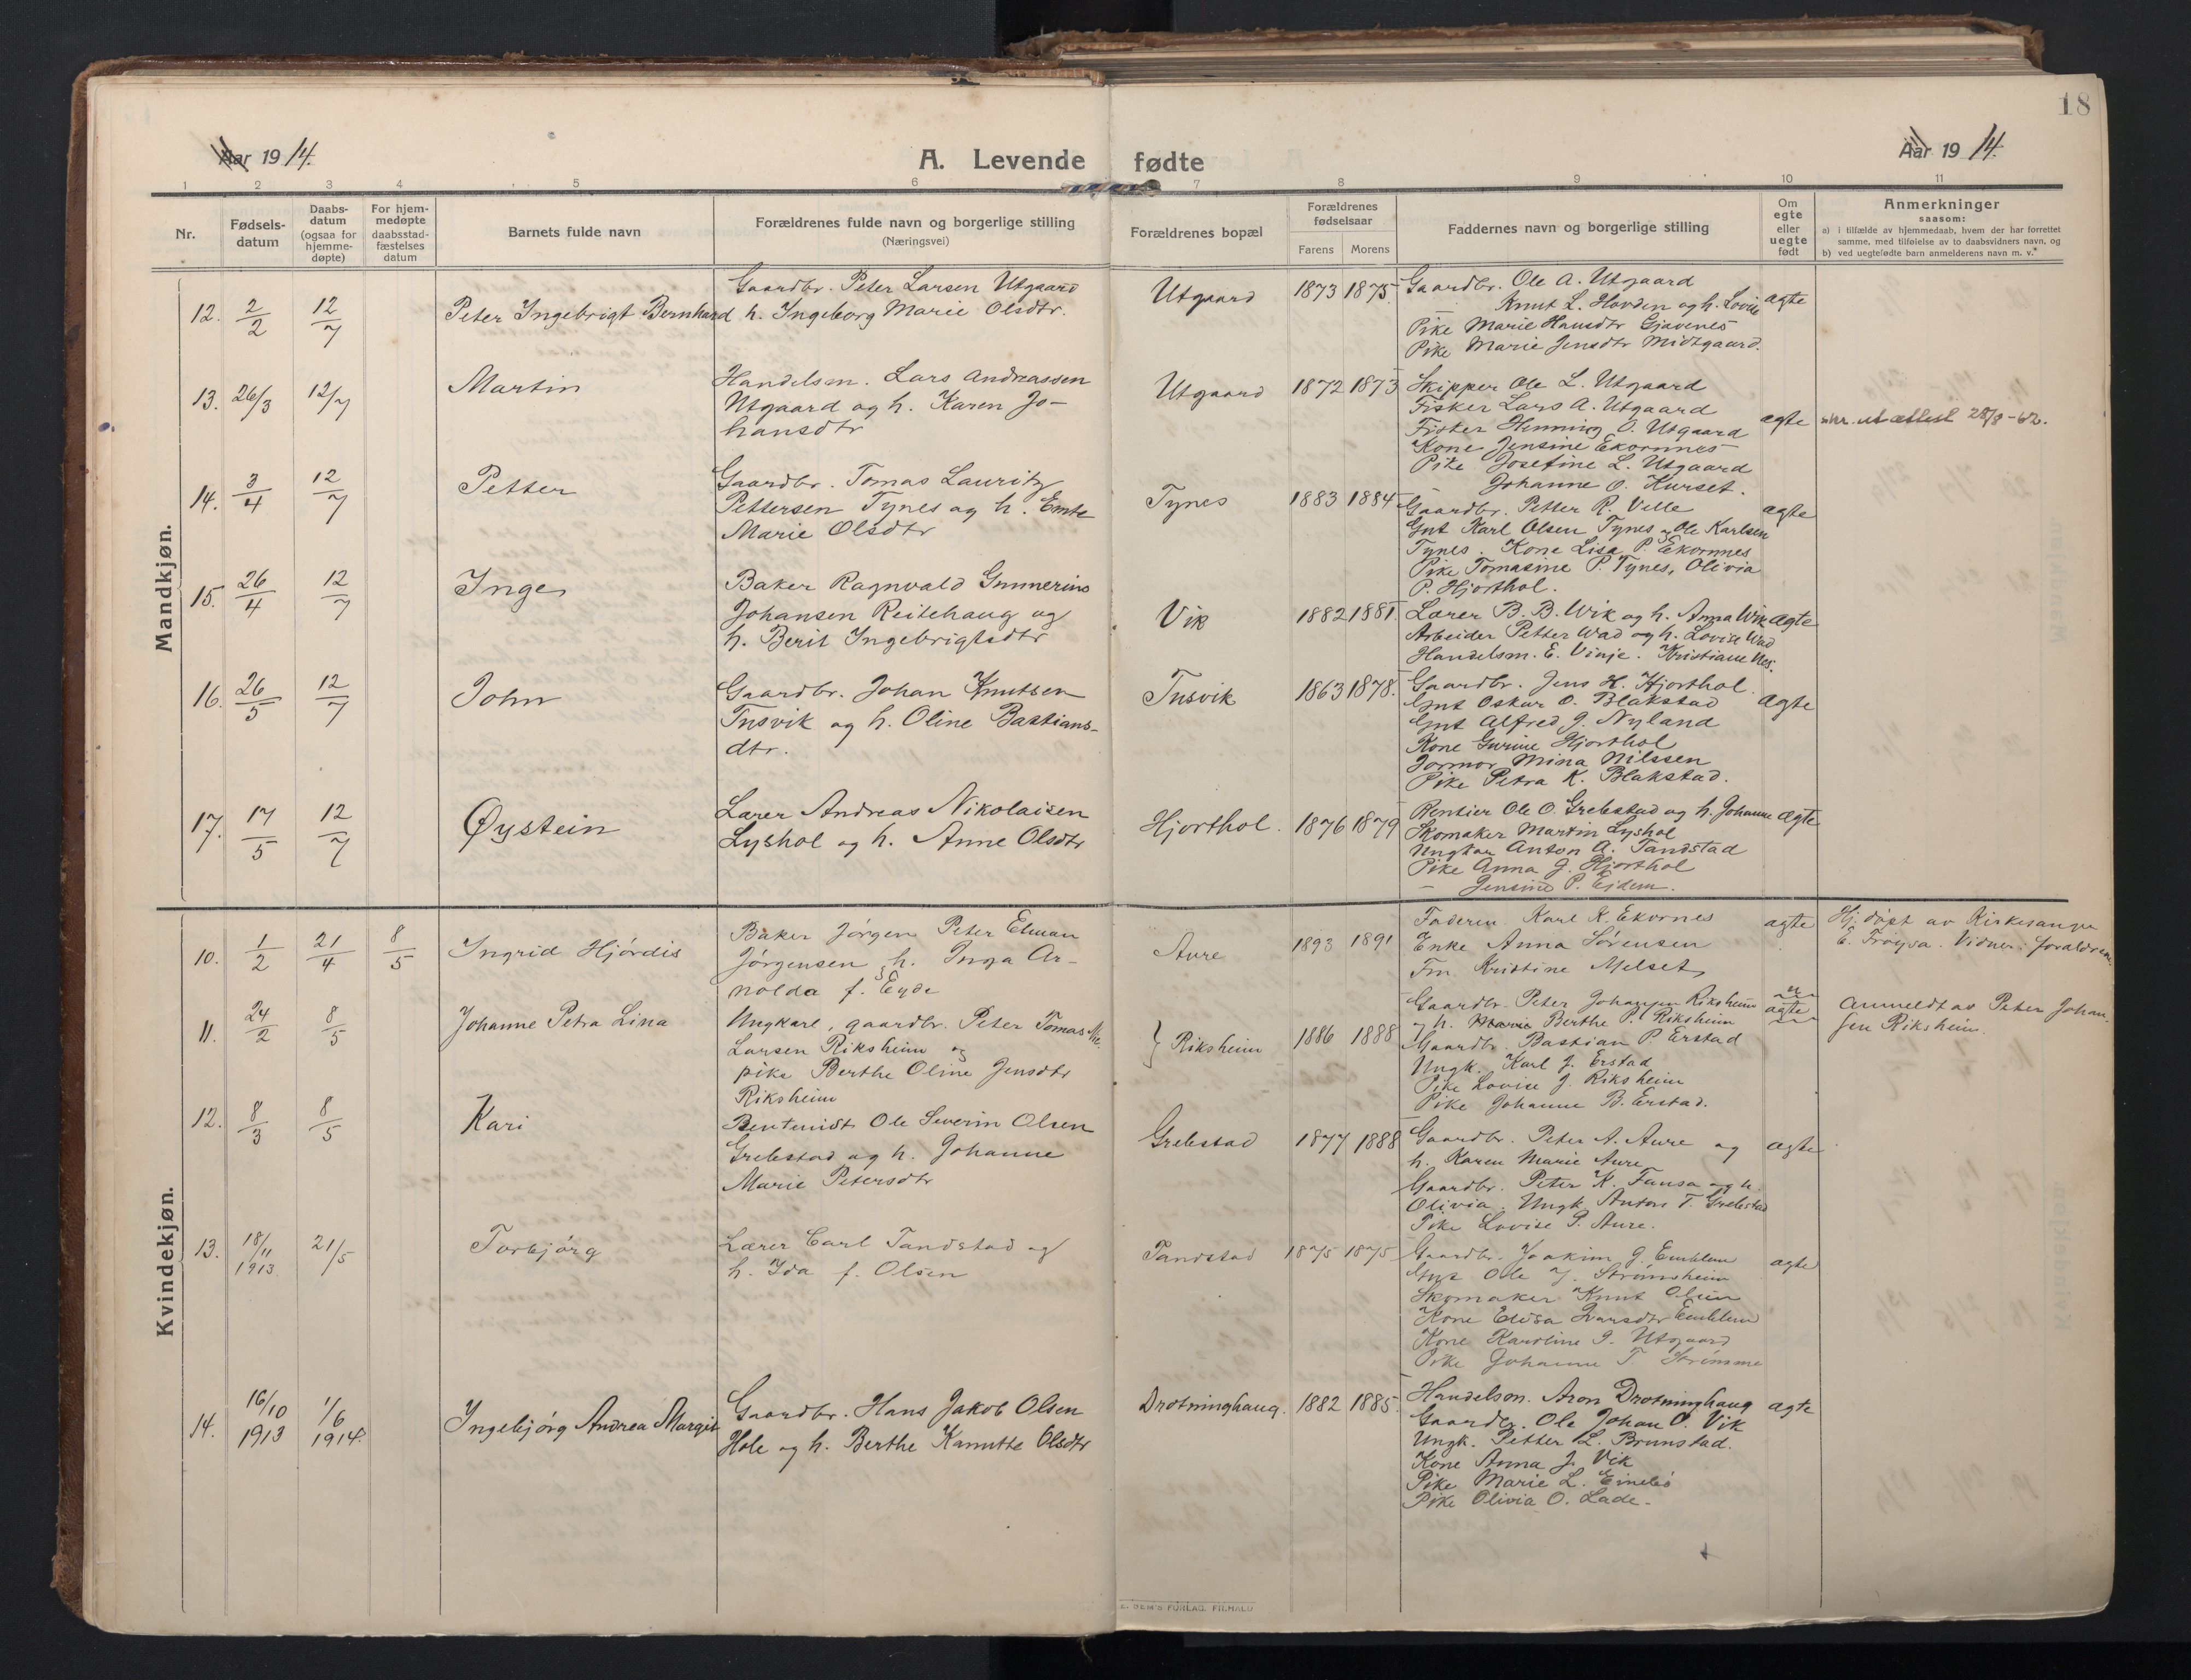 18
Aar 1914.
A. Levende fødte
Aar 1914.
1 2 3 4 5 6 7 8 9 10 11
Nr.
Fødsels-
datum
Daabs-
datum
(ogsaa for
hjemme-
døpte)
For hjem-
medøpte
daabsstad-
fæstelses
datum
Barnets fulde navn
Forældrenes fulde navn og borgerlige stilling
(Næringsvei)
Forældrenes bopæl
Forældrenes
fødselsaar
Farens Morens
Faddernes navn og borgerlige stilling
Om
egte
eller
uegte
født
Anmerkninger
saasom:
a) i tilfælde av hjemmedaab, hvem der har forrettet
samme, med tilføielse av to daabsvidners navn, og
b) ved uegtefødte barn anmelderens navn m. v.*
Mandkjøn.
12. 2/2 12/7
Peter Ingebrigt Bernhard
Gaardbr. Peter Larsen Utgaard
h. Ingeborg Marie Olsdtr.
Utgaard 1873 1875.
Gaardbr. Ole A. Utgaard
— Knut L. Hovden og h. Lovise
Pike Marie Hansdtr Gjævenes
Pike Marie Jensdtr Midtgaard.
ægte
13. 26/3 12/7
Martin
Handelsm. Lars Andreassen
Utgaard og h. Karen Jo-
hansdtr
Utgaard 1872 1873
Skipper Ole L. Utgaard
Fisker Lars A. Utgaard
Fisker Henning O. Utgaard
Kone Jensine Ekornnes
Pike Josefine L. Utgaard
— Johanne O. Kurset.
ægte
skr. ut attest 28/8-62.
14. 3/4 12/7
Petter
Gaardbr. Tomas Lauritz
Pettersen Tynes og h. Emte
Marie Olsdtr
Tynes 1883 1884
Gaardbr. Petter R. Velle
Gut Karl Olsen Tynes og Ole Karlsen
Tynes. Kone Lisa P. Ekornnes
Pike Tomasine P. Tynes, Olivia
P. Hjorthol.
ægte
15. 26/4 12/7
Inge
Baker Ragnvald Gunnerius
Johansen Reitehaug og
h. Berit Ingebrigtsdtr
Vik 1882 1881.
Lærer B. B. Wik og h. Anna Wik
Arbeider Petter Wad og h. Lovise Wad
Handelsm. E. Vinje. Kristiane Nes.
ægte
16. 26/5 12/7
John
Gaardbr. Johan Knutsen
Tusvik og h. Oline Bastians-
dtr.
Tusvik 1863 1878.
Gaardbr. Jens H. Hjorthol.
Gut Oskar O. Blakstad
Gut Alfred J. Nyland
Kone Gurine Hjorthol
Jormor Mina Nilssen
Pike Petra K. Blakstad.
ægte
17. 17/5 12/7
Øystein
Lærer Andreas Nikolaisen
Lyshol og h. Anne Olsdtr
Hjorthol. 1876 1879
Rentier Ole O. Grebstad og h. Johanne
Skomaker Martin Lyshol
Ungkar Anton A. Tandstad
Pike Anna J. Hjorthol
— Jensine P. Eidem.
ægte
Kvindekjøn.
10. 1/2 21/4 8/5
Ingrid Hjørdis
Baker Jørgen Peter Elman
Jørgensen og h. Inga Ar-
nolda f. Eyde
Aure 1893 1891
Faderen Karl K. Ekornes
Enke Anna Sørensen
Frn. Kristine Melset
ægte
Hj. døpt av Kirkesanger
E. Frøysa. Vidner: forældrene.
11. 24/2 8/5
Johanne Petra Lina
Ungkarl, gaardbr. Peter Tomas
Larsen Riksheim og
pike Berthe Oline Jensdtr
Riksheim
} Riksheim 1886 1888
Gaardbr. Peter Johansen Riksheim
og h. Berthe P. Riksheim
Gaardbr. Bastian P Erstad
Ungk. Karl J. Erstad
Pike Lovise J. Riksheim
Pike Johanne B. Erstad.
u
ægte
Anmeldt av Peter Johan-
sen Riksheim.
12. 8/3 8/5
Kari
Rentenist Ole Severin Olsen
Grebstad og h. Johanne
Marie Petersdtr
Grebstad 1877 1888
Gaardbr. Peter A. Aure og
h. Karen Marie Aure
Gaardbr. Peter K. Fausa og h.
Olivia. Ungk Anton T. Grebstad
Pike Lovise P. Aure.
ægte
13. 18/11 1913 21/5
Torbjørg
Lærer Carl Tandstad og
h. Ida f. Olsen
Tandstad 1875 1875
Gaardbr. Joakim J. Emblem
Gut Ole J. Strømsheim
Skomaker Knut Olsen
Kone Elisa Ivarsdtr Emblem
Kone Karoline I. Utgaard
Pike Johanne T. Strømme
ægte
14. 16/10 1913 1/6 1914.
Ingebjørg Andrea Margit
Gaardbr. Hans Jakob Olsen
Hole og h. Berthe Kanutte Olsdtr
Drotninghaug. 1882 1885.
Handelsm. Aron Drotninghaug
Gaardbr. Ole Johan O. Vik
Ungk. Petter L. Brunstad.
Kone Anna J. Vik
Pike Marie L. Einebø
Pike Olivia O. Lade.
ægte
E. SEM'S FORLAG, FR.HALD